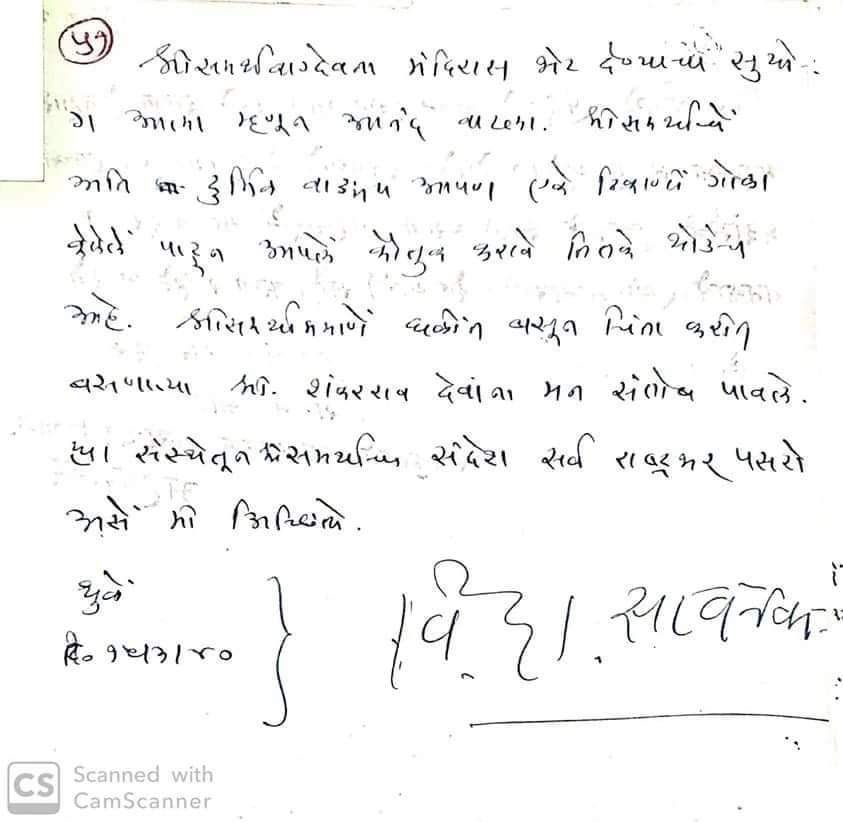 ५१
श्रीसमर्थवाग्देवता मंदिरास भेट देण्याचा सुयो-
ग आला म्हणून आनंद वाटला. श्रीसमर्थांचें
अति दुर्मिळ वाङ्मय आपण एके ठिकाणीं गोळा
केलेलें पाहून आपलें कौतुक करावे तितके थोडेच
आहे. श्रीसमर्थांप्रमाणें धळींत बसून चिंता करीत
बसणाऱ्या श्री. शंकरराव देवांना मन संतोष पावले.
ह्या संस्थेतून श्रीसमर्थांचा संदेश सर्व राष्ट्रभर पसरो
असें मी इच्छितो.
धुळें
दि०
वि. दा. सावरकर
CS Scanned with
CamScanner